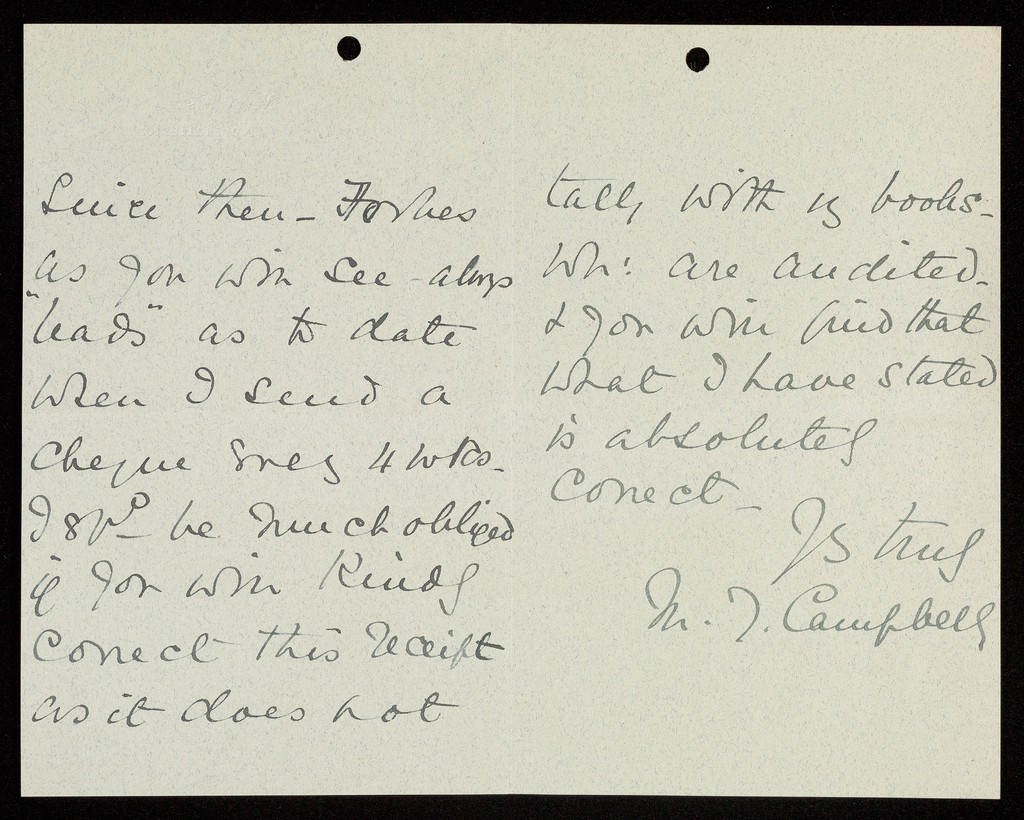 Since then - Forbes
as you will see - always
"leads" as to date
when I send a
cheque every 4 wks.
I sh^d be much obliged
if you will kindly
correct this receipt
as it does not
tally with my books -
wh: are audited -
& you will find that
what I have stated
is absolutely
correct -
Yrs truly
M. J. Campbell